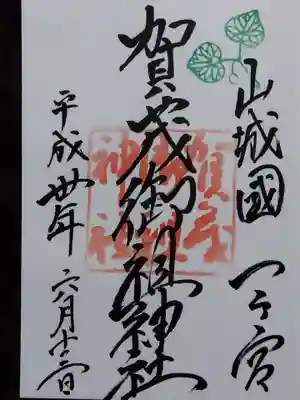 山城國 一ヶ宮
賀茂御祖神社
平成卅年 六月
賀茂
御祖
神社